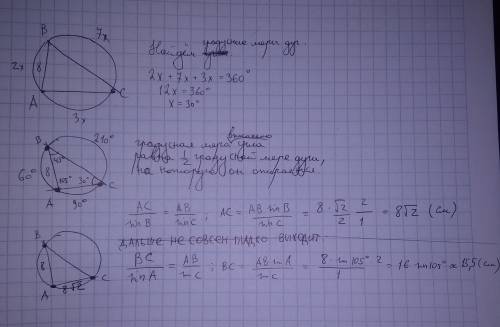 B
7x
2x
8
A
C
3x
Найдём градусные меры дуг.
2x + 7x + 3x = 360°
12x = 360°
x = 30°
210°
B
45°
60°
8
105°
30°
A
C
90°
градусная мера вписанно угла
равна 1/2 градусной мере дуги,
на которую он опирается.
AC/sin B = AB/sin C ; AC = AB sin B/sin C = 8·√2/2 · 2/1 = 8√2 (см)
ДАЛЬШЕ НЕ СОВСЕМ ГЛАДКО ВЫХОДИТ
B
8
A
8√2
C
BC/sin A = AB/sin C ; BC = AB sin A/sin C = 8 sin 105° 2/1 = 16 sin 105° ≈ 15,5 (см)